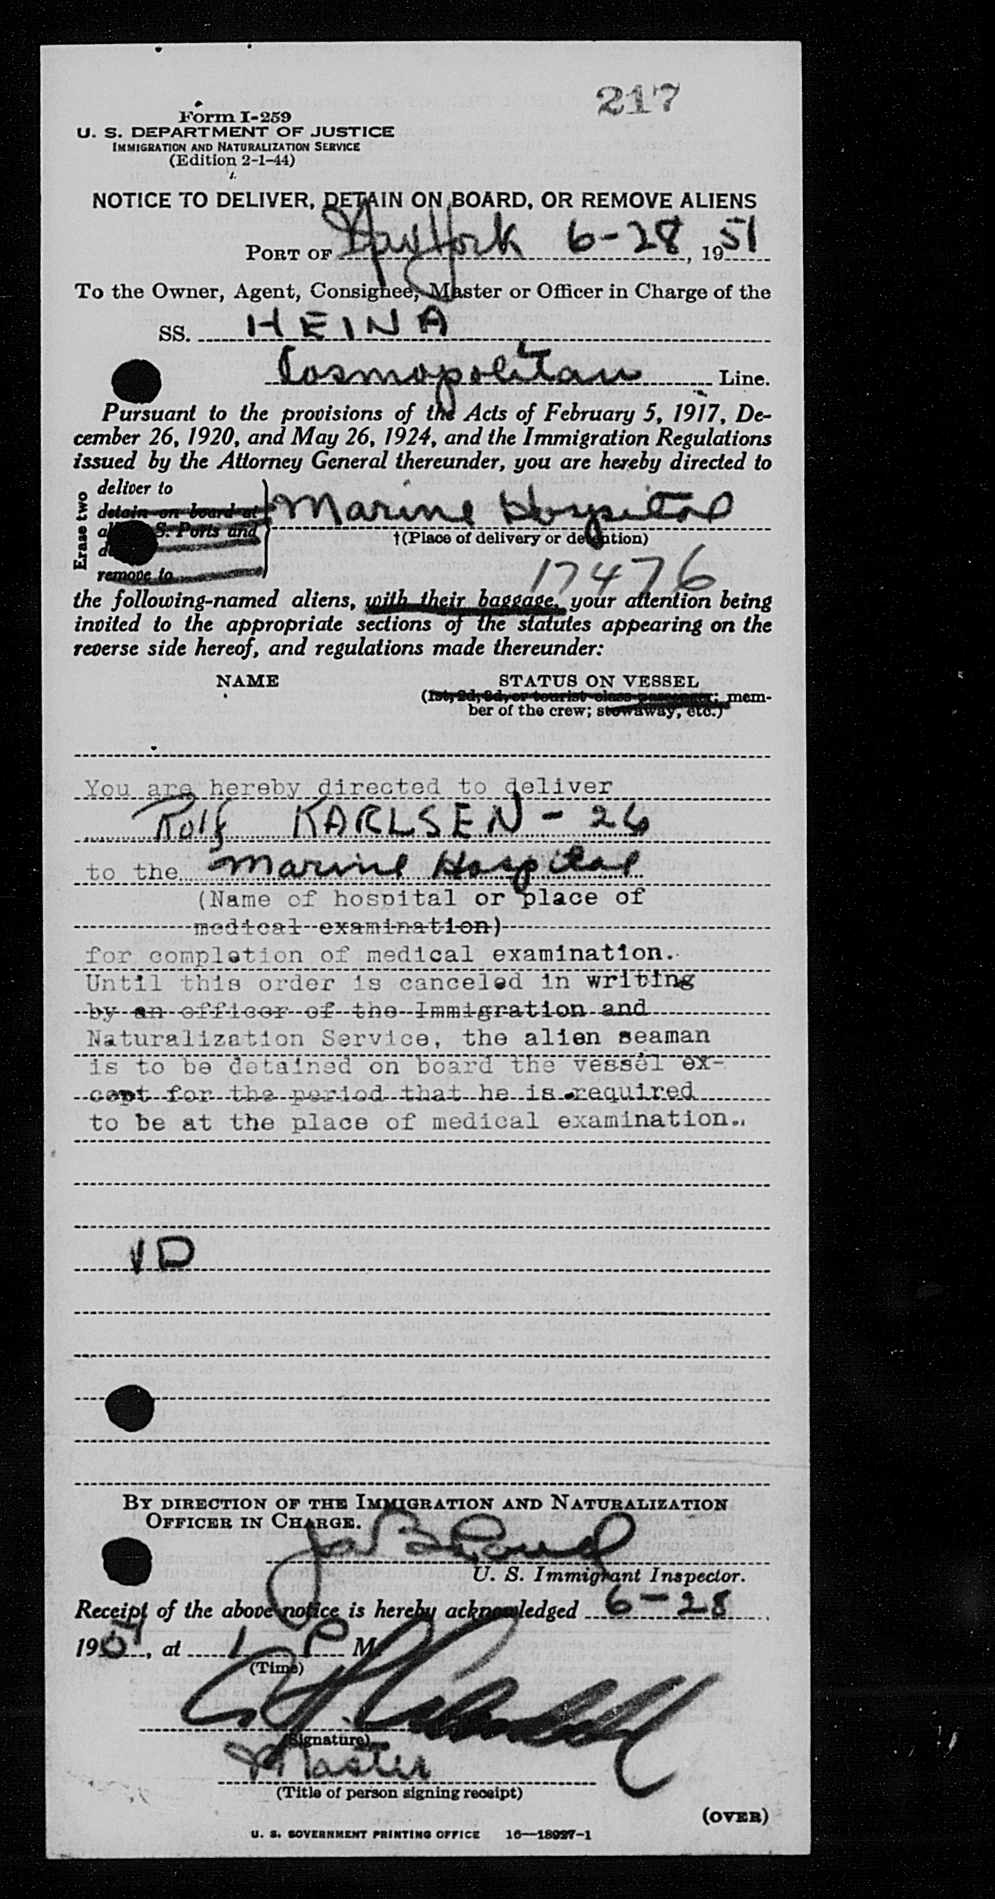 217
Form I-259
U. S. DEPARTMENT OF JUSTICE
IMMIGRATION AND NATURALIZATION SERVICE
(Edition 2-1-44)
NOTICE TO DELIVER, DETAIN ON BOARD, OR REMOVE ALIENS
PORT OF New York 6-28, 1951
To the Owner, Agent, Consignee, Master or Officer in Charge of the
SS. HEINA
Cosmopolitan Line.
Pursuant to the provisions of the Acts of February 5, 1917, De-
cember 26, 1920, and May 26, 1924, and the Immigration Regulations
issued by the Attorney General thereunder, you are hereby directed to
Erase two
deliver to
detain on board at
S. Ports and
remove to
Marine Hospital
†(Place of delivery or detention)
17476
the following-named aliens, with their baggage, your attention being
invited to the appropriate sections of the statutes appearing on the
reverse side hereof, and regulations made thereunder:
NAME STATUS ON VESSEL
(1st, 2d, 3d, or tourist class passenger; mem-
ber of the crew; stowaway, etc.)
You are hereby directed to deliver
Rolf KARLSEN - 26
to the Marine Hospital
(Name of hospital or place of
medical examination)
for completion of medical examination.
Until this order is canceled in writing
by an officer of the Immigration and
Naturalization Service, the alien seaman
is to be detained on board the vessel ex-
cept for the period that he is required
to be at the place of medical examination.
VD
BY DIRECTION OF THE IMMIGRATION AND NATURALIZATION
OFFICER IN CHARGE.
U. S. Immigrant Inspector.
Receipt of the above notice is hereby acknowledged 6-28
1951, at 1 P M
(Time)
(Signature)
Master
(Title of person signing receipt)
(OVER)
U. S. GOVERNMENT PRINTING OFFICE 16—18927-1